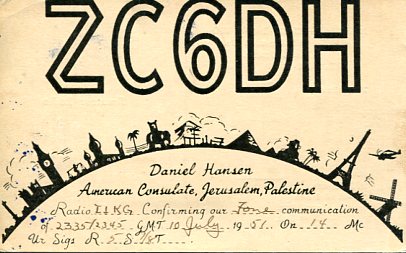 ZC6DH
Daniel Hansen
American Consulate, Jerusalem, Palestine
Radio I1KG Confirming our Fone communication
of 2335/2345 GMT 10 July 1951. On 14 Mc
Ur Sigs R 5 S T